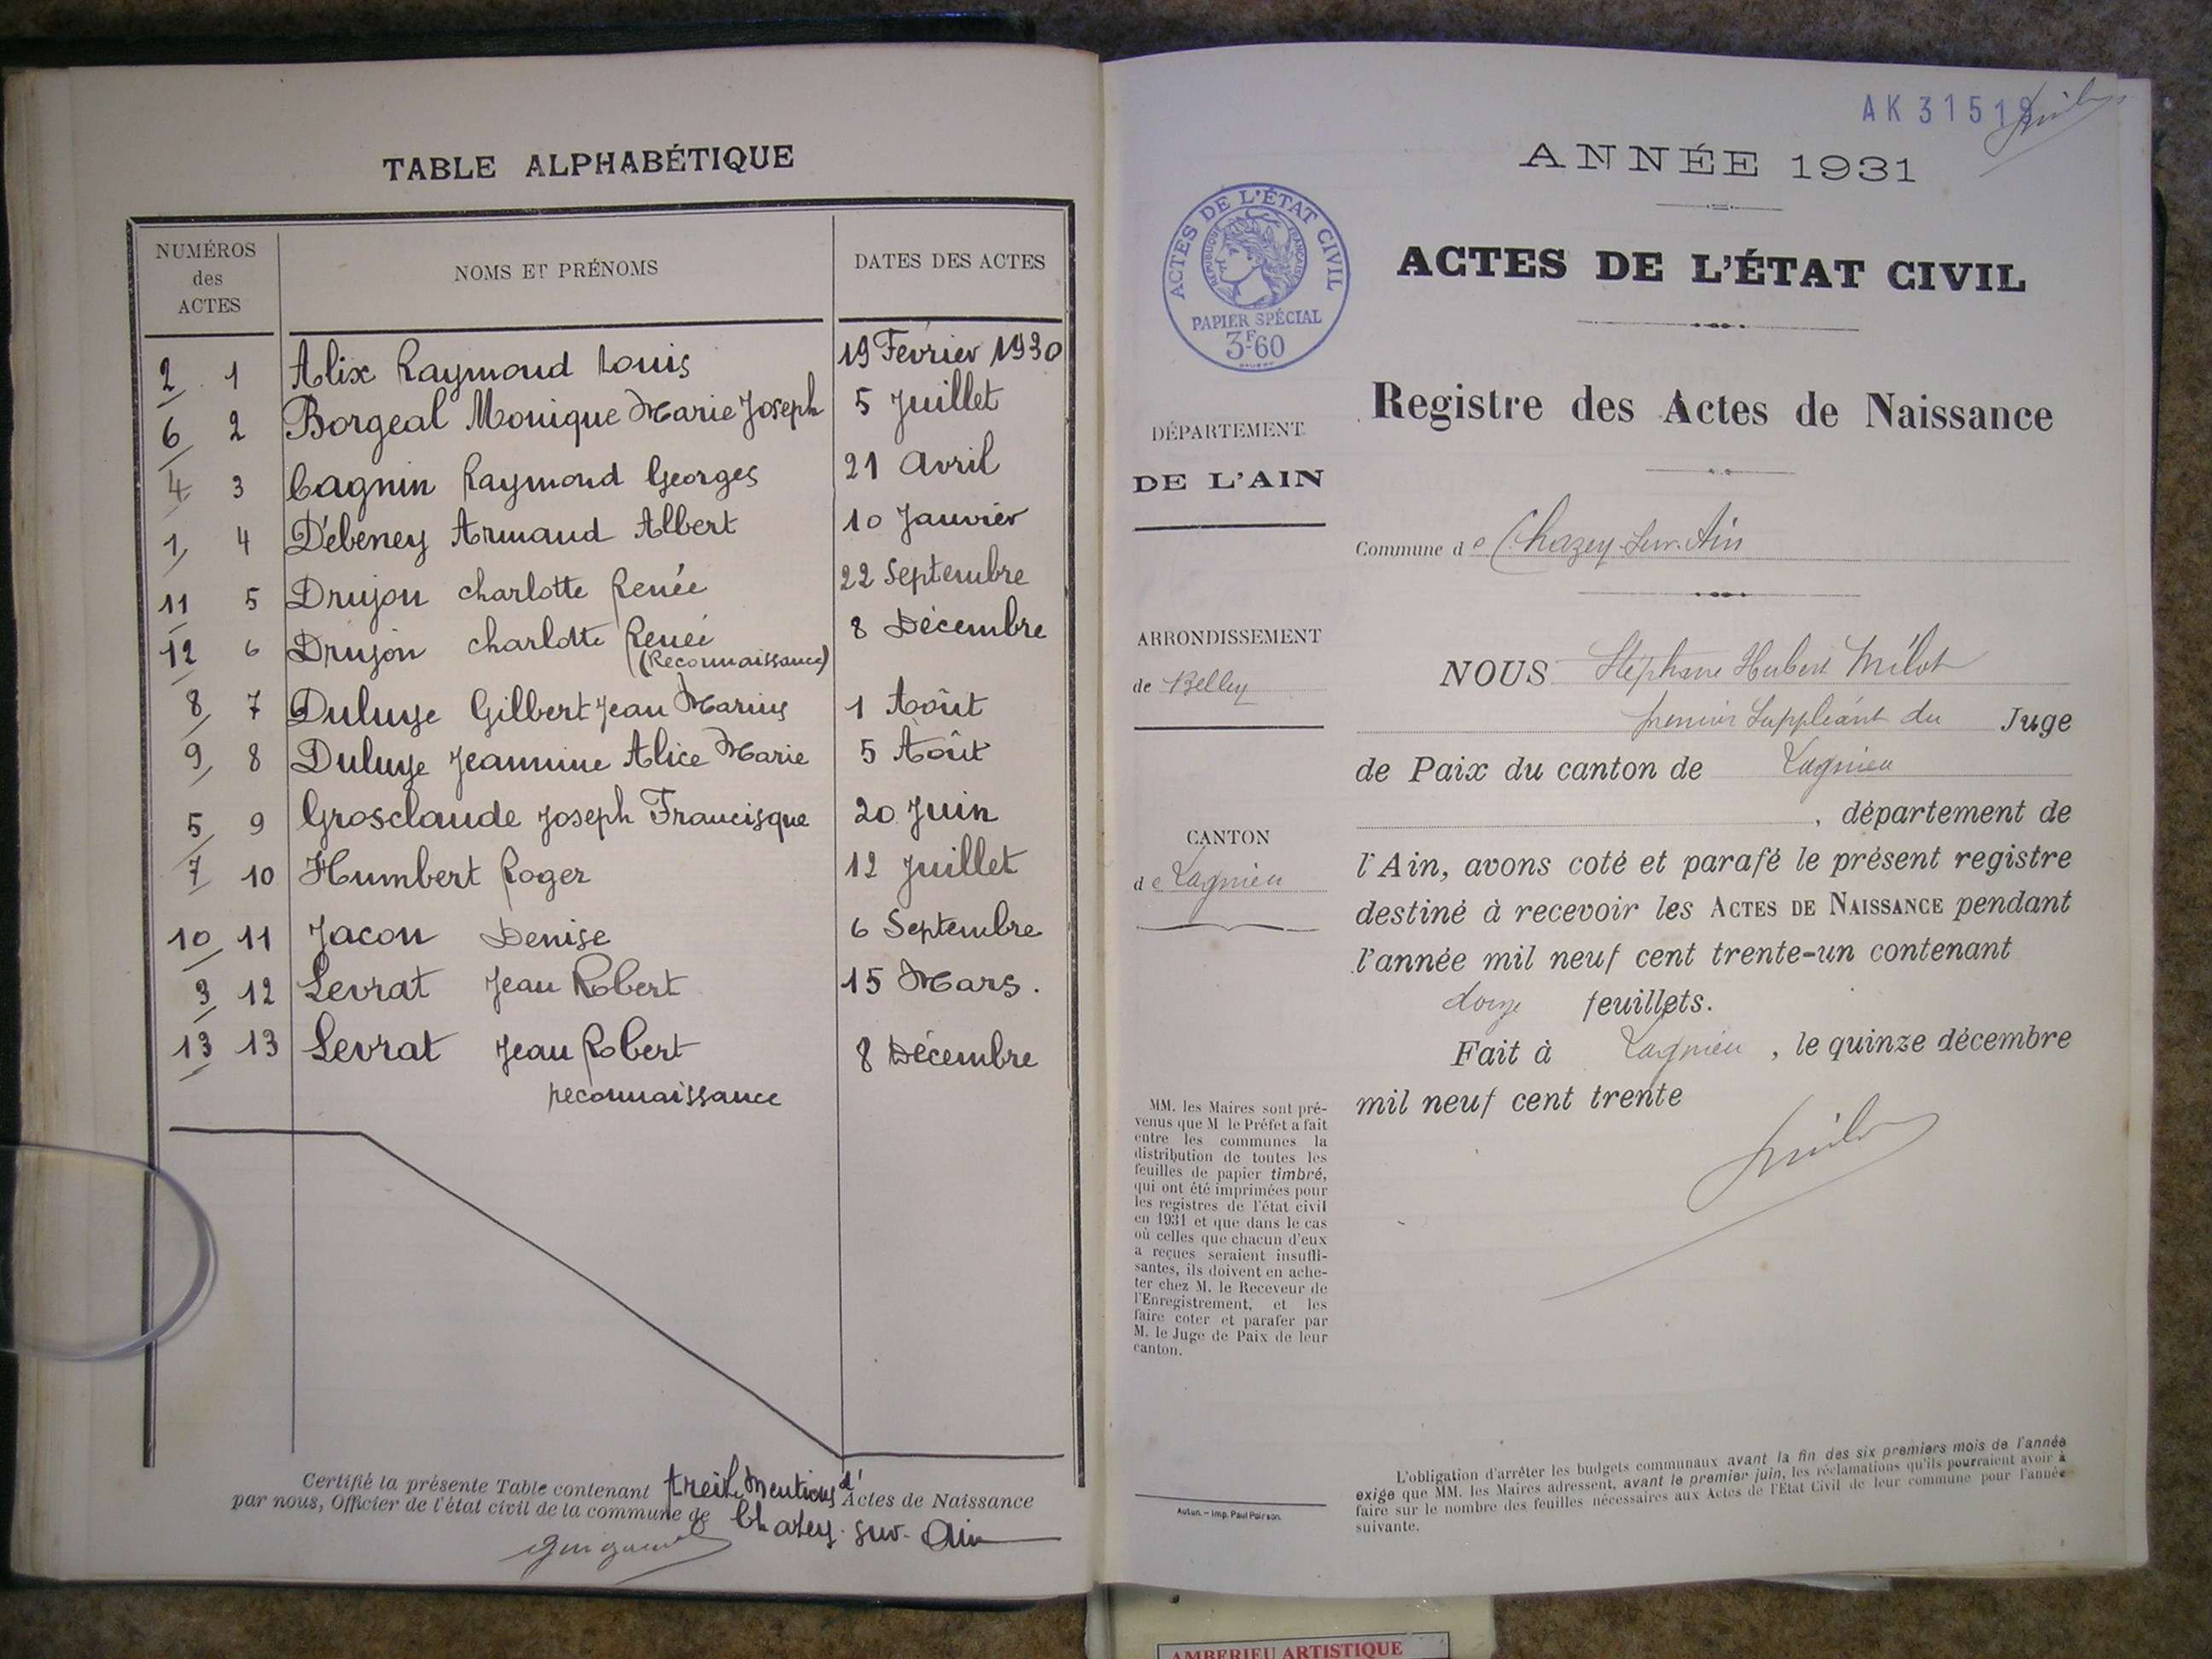 TABLE ALPHABÉTIQUE
NUMÉROS
des
ACTES
NOMS ET PRÉNOMS
DATES DES ACTES
2 1 Alix Raymond Louis 19 Février 1930
6 2 Borgeal Monique Marie Joseph 5 Juillet
4 3 Cagnin Raymond Georges 21 Avril
1 4 Débeney Armand Albert 10 Janvier
11 5 Drujon charlotte Renée 22 Septembre
12 6 Drujon charlotte Renée 8 Décembre
(Reconnaissance)
8 7 Duluye Gilbert Jean Marius 1 Août
9 8 Duluye Jeannine Alice Marie 5 Août
5 9 Grosclaude Joseph Francisque 20 Juin
7 10 Humbert Roger 12 Juillet
10 11 Jacon Denise 6 Septembre
3 12 Levrat Jean Robert 15 Mars.
13 13 Levrat Jean Robert 8 Décembre
reconnaissance
Certifié la présente Table contenant treize mentions d' Actes de Naissance
par nous, Officier de l'état civil de la commune de Chazey-sur-Ain
AK 31519
ANNÉE 1931
ACTES DE L'ÉTAT CIVIL
RÉPUBLIQUE FRANÇAISE
PAPIER SPÉCIAL
3F60
ACTES DE L'ÉTAT CIVIL
Registre des Actes de Naissance
DÉPARTEMENT
DE L'AIN
Commune de Chazey-sur-Ain
ARRONDISSEMENT
de Belley
CANTON
de Lagnieu
NOUS Stéphane Hubert Milot
premier Suppléant du Juge
de Paix du canton de Lagnieu
, département de
l'Ain, avons coté et parafé le présent registre
destiné à recevoir les ACTES DE NAISSANCE pendant
l'année mil neuf cent trente-un contenant
douze feuillets.
Fait à Lagnieu, le quinze décembre
mil neuf cent trente
MM. les Maires sont pré-
venus que M le Préfet a fait
entre les communes la
distribution de toutes les
feuilles de papier timbré,
qui ont été imprimées pour
les registres de l'état civil
en 1931 et que dans le cas
où celles que chacun d'eux
a reçues seraient insuffi-
santes, ils doivent en ache-
ter chez M. le Receveur de
l'Enregistrement, et les
faire coter et parafer par
M. le Juge de Paix de leur
canton.
Autun. - Imp. Paul Poirson.
L'obligation d'arrêter les budgets communaux avant la fin des six premiers mois de l'année
exige que MM. les Maires adressent, avant le premier juin, les réclamations qu'ils pourraient avoir à
faire sur le nombre des feuilles nécessaires aux Actes de l'Etat Civil de leur commune pour l'année
suivante.
AMBERIEU ARTISTIQUE